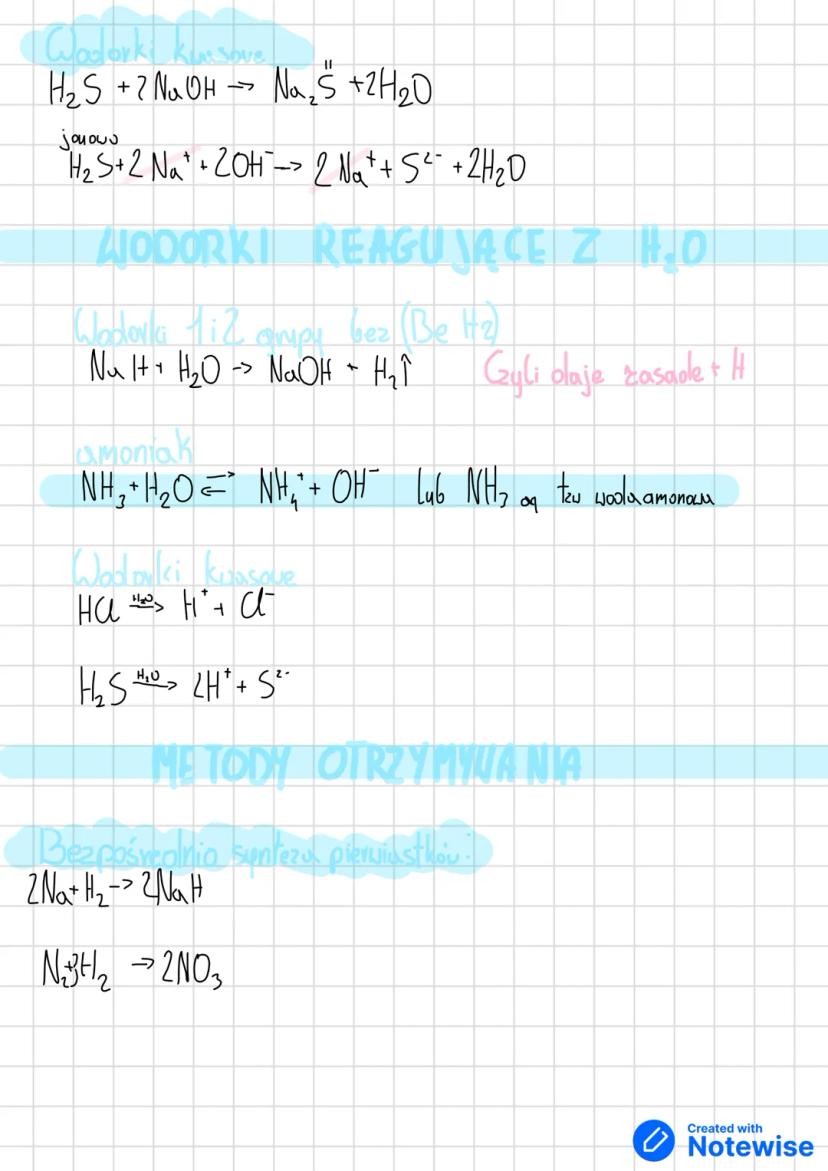 Wodorki kwasowe
H₂S + 2NaOH → Na₂S + 2H₂O
II
jonowo
H₂S + 2Na⁺ + 2OH⁻ → 2Na⁺ + S²⁻ + 2H₂O
WODORKI REAGUJĄCE Z H₂O
Wodorki 1 i 2 grupy bez (BeH₂)
NaH + H₂O → NaOH + H₂↑ Czyli daje zasade + H
amoniak
NH₃ + H₂O ⇄ NH₄⁺ + OH⁻ lub NH₃ aq tzw woda amonowa
Wodorki kwasowe
HCl —H₂O→ H⁺ + Cl⁻
H₂S —H₂O→ 2H⁺ + S²⁻
METODY OTRZYMYWANIA
Bezpośrednia synteza pierwiastków:
2Na + H₂ → 2NaH
N₂+3H₂ → 2NO₃
Created with
Notewise